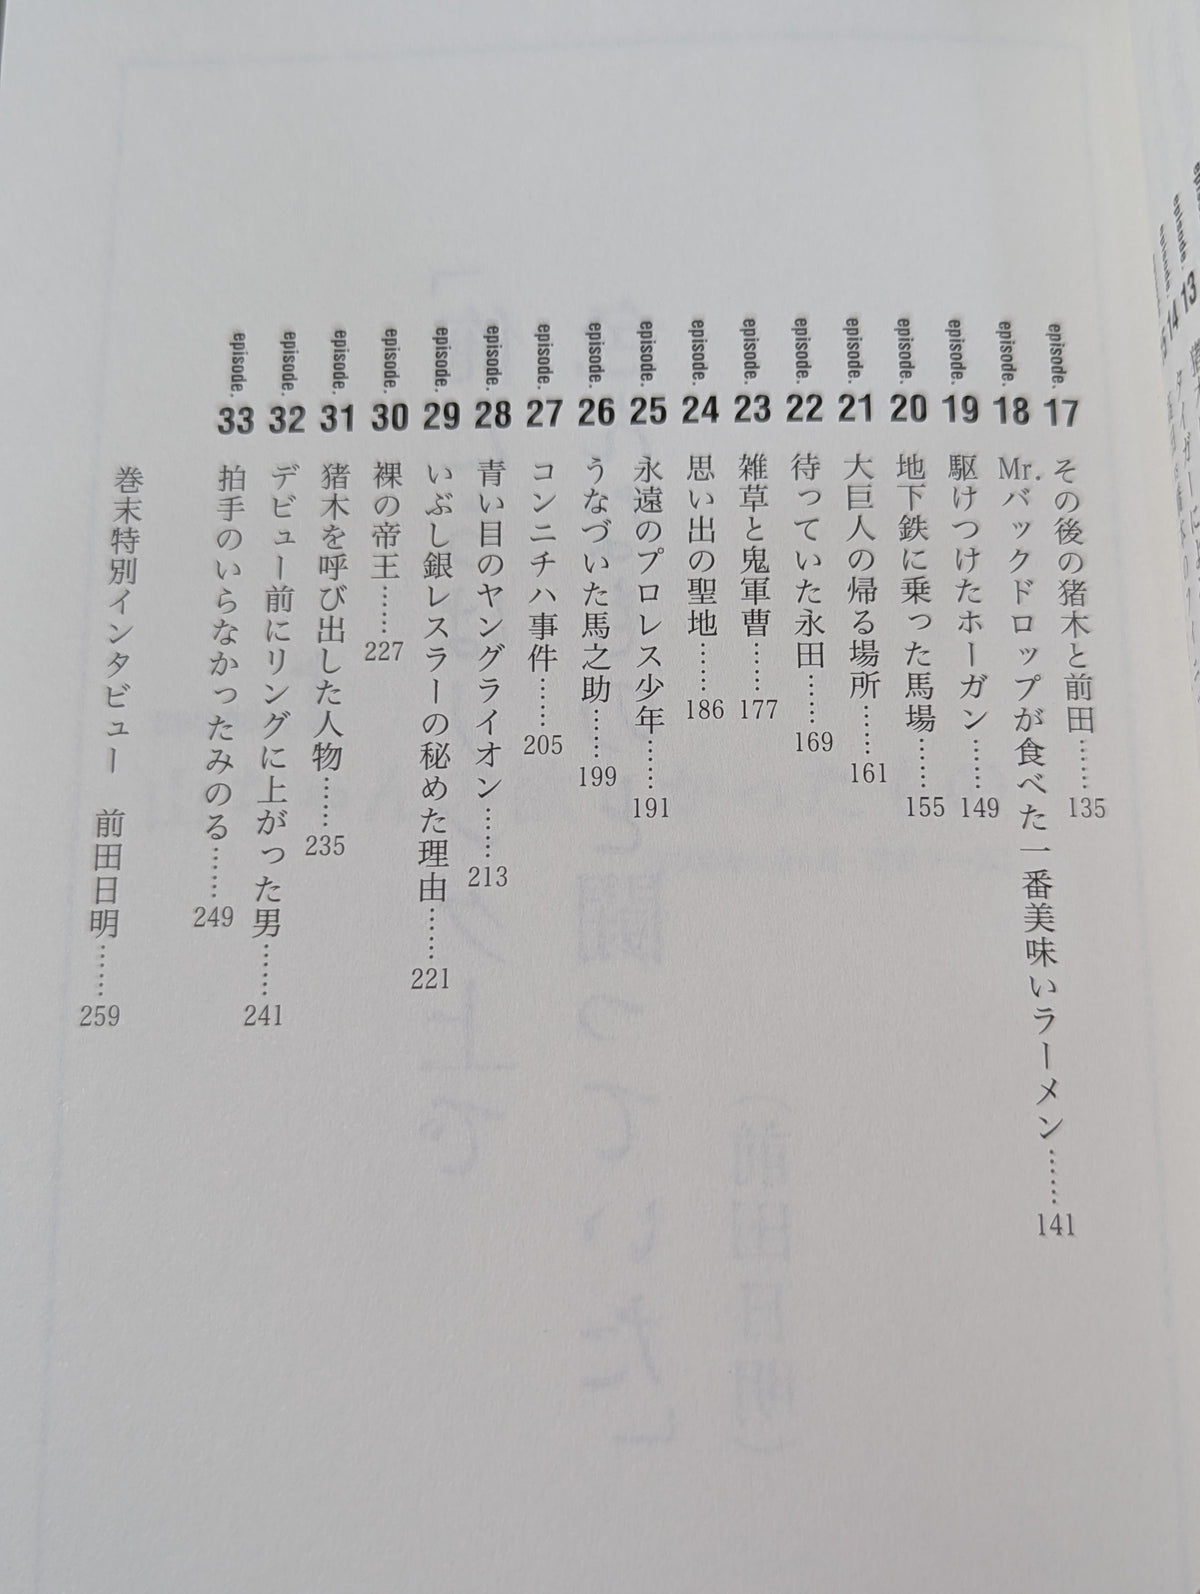 episode.13
episode.14
episode.17 その後の猪木と前田……135
episode.18 Mr.バックドロップが食べた一番美味いラーメン……141
episode.19 駆けつけたホーガン……149
episode.20 地下鉄に乗った馬場……155
episode.21 大巨人の帰る場所……161
episode.22 待っていた永田……169
episode.23 雑草と鬼軍曹……177
episode.24 思い出の聖地……186
episode.25 永遠のプロレス少年……191
episode.26 うなづいた馬之助……199
episode.27 コンニチハ事件……205
episode.28 青い目のヤングライオン……213
episode.29 いぶし銀レスラーの秘めた理由……221
episode.30 裸の帝王……227
episode.31 猪木を呼び出した人物……235
episode.32 デビュー前にリングに上がった男……241
episode.33 拍手のいらなかったみのる……249
巻末特別インタビュー　前田日明……259